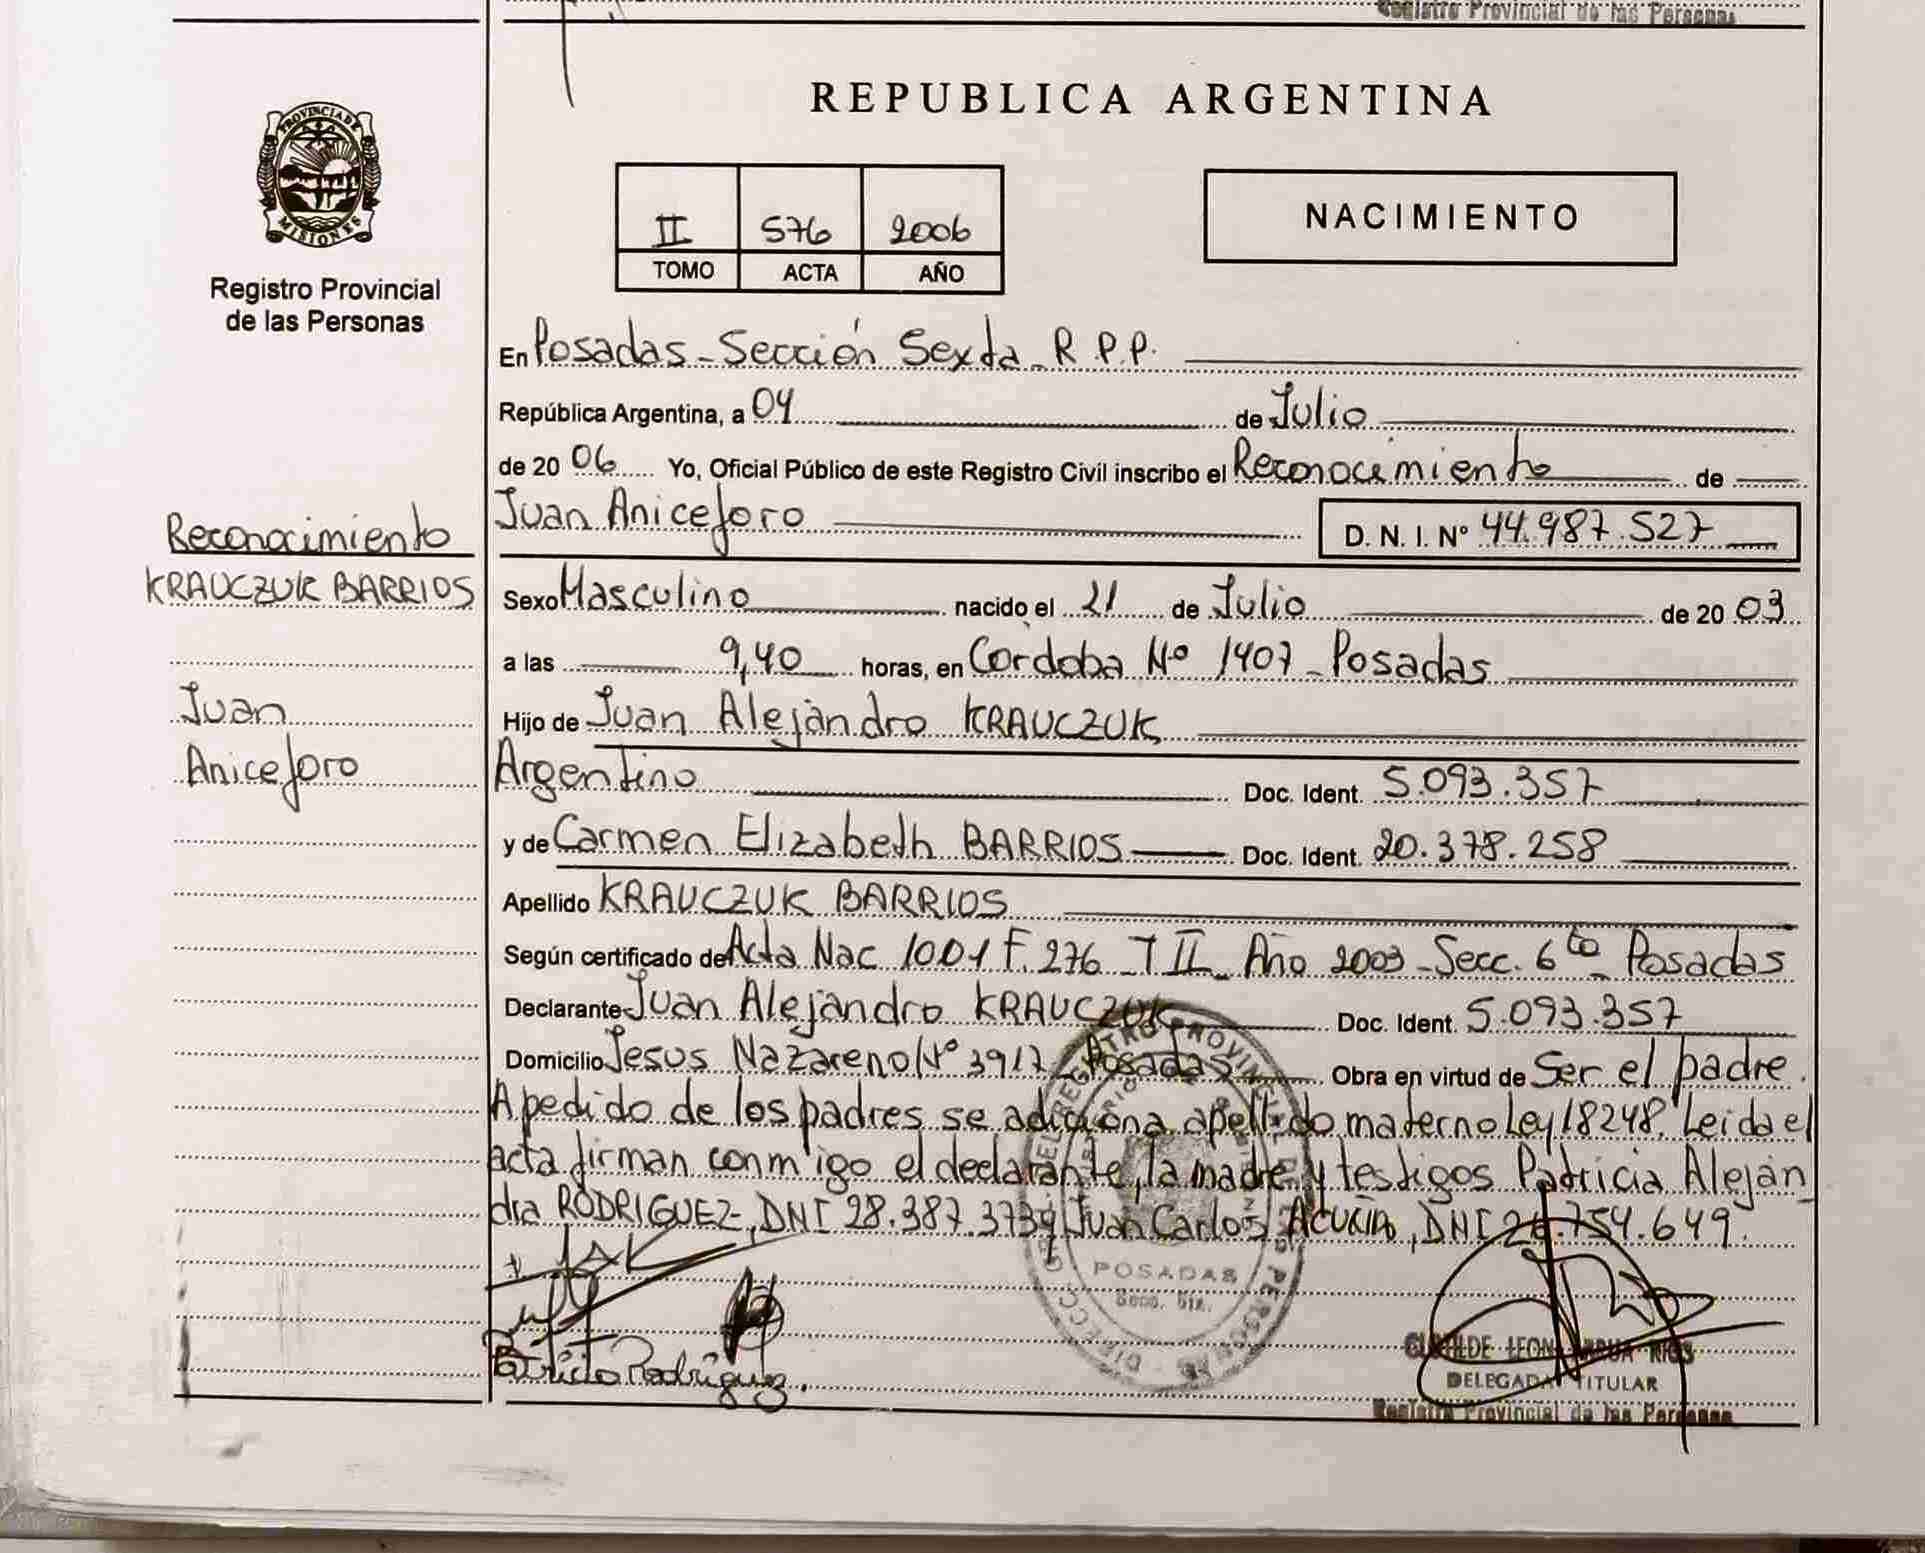 Registro Provincial de las Personas
PROVINCIA DE
MISIONES
Registro Provincial
de las Personas
REPUBLICA ARGENTINA
II 576 2006
TOMO ACTA AÑO
NACIMIENTO
En Posadas - Sección Sexta - R.P.P.
República Argentina, a 04 de Julio
de 20 06 Yo, Oficial Público de este Registro Civil inscribo el Reconocimiento de
Juan Aniceforo D. N. I. Nº 44.987.527
Reconocimiento
KRAUCZUK BARRIOS
Juan
Aniceforo
Sexo Masculino nacido el 21 de Julio de 20 03
a las 9,40 horas, en Córdoba Nº 1407 - Posadas
Hijo de Juan Alejandro KRAUCZUK
Argentino Doc. Ident. 5.093.357
y de Carmen Elizabeth BARRIOS Doc. Ident. 20.378.258
Apellido KRAUCZUK BARRIOS
Según certificado de Acta Nac 1001 F. 276 - T II - Año 2003 - Secc. 6ta - Posadas
Declarante Juan Alejandro KRAUCZUK Doc. Ident. 5.093.357
Domicilio Jesus Nazareno Nº 3917 - Posadas Obra en virtud de Ser el padre.
A pedido de los padres se adiciona apellido materno Ley 18248. Leida el
acta firman conmigo el declarante, la madre y testigos Patricia Alejan
dra RODRIGUEZ, DNI 28.387.373 y Juan Carlos ACUÑA, DNI 754.649.
POSADAS
Secc. 6ta.
Rodriguez
DELEGADA TITULAR
Registro Provincial de las Personas